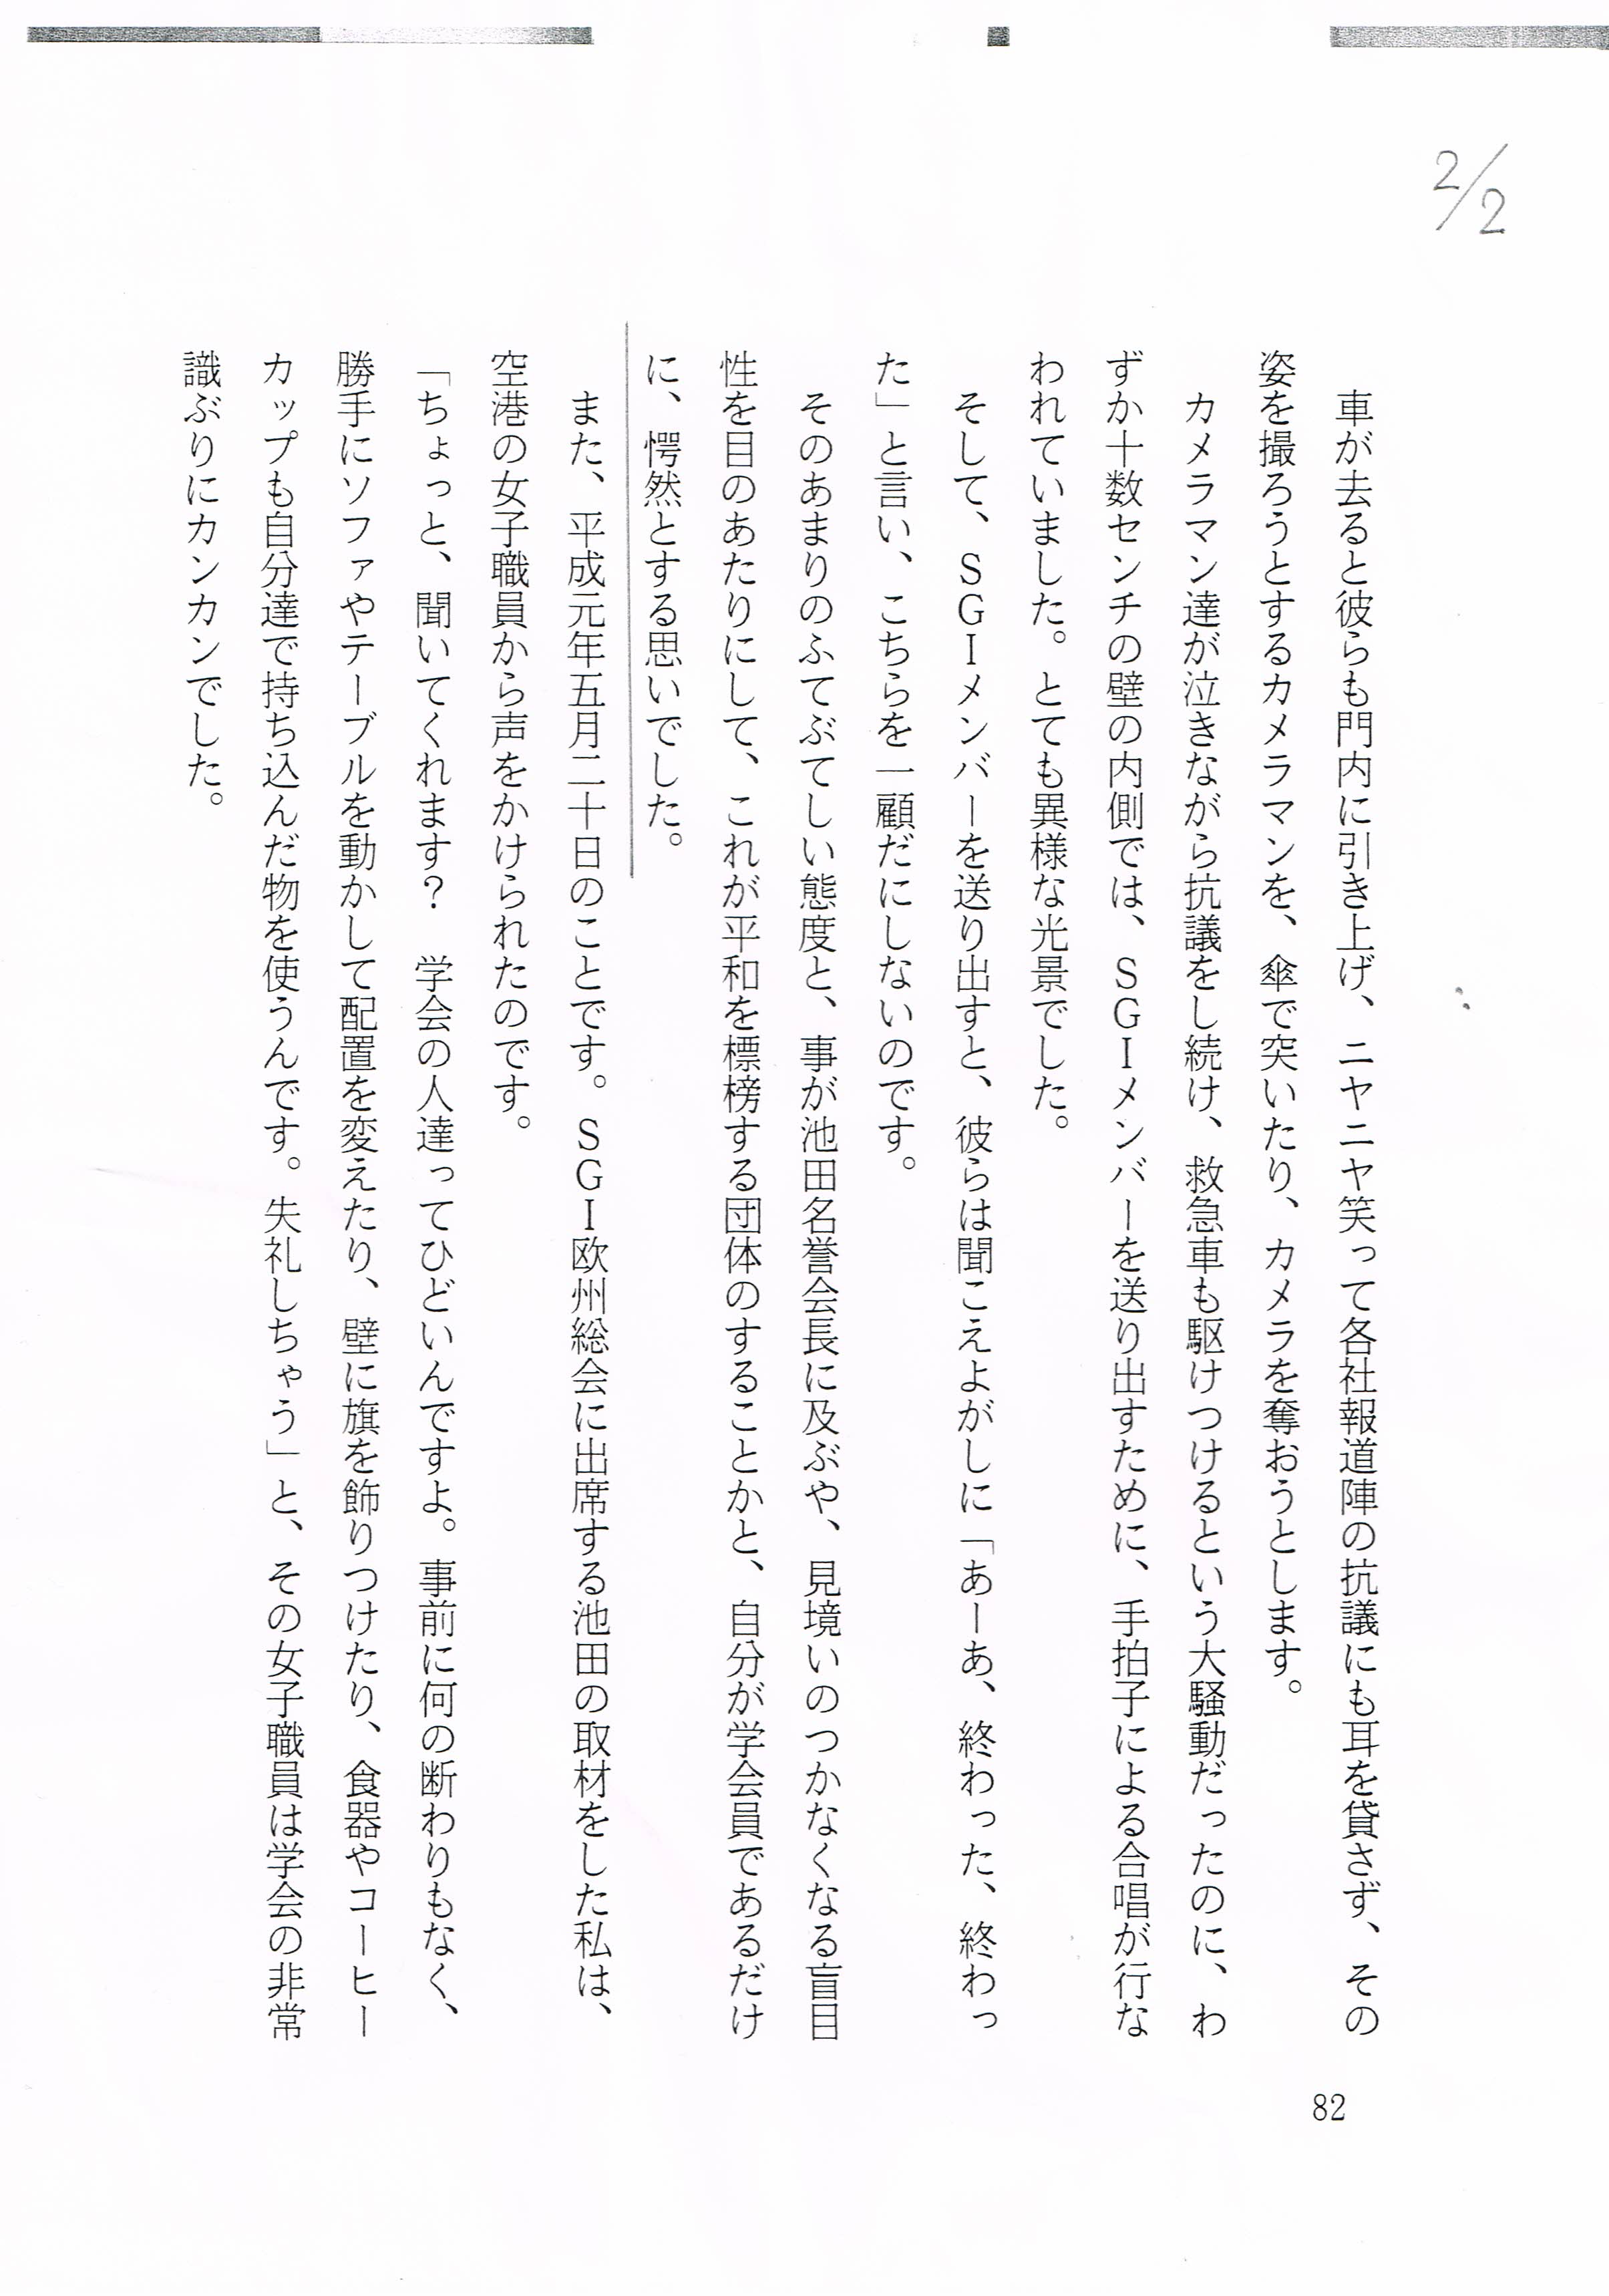 2/2
車が去ると彼らも門内に引き上げ、ニヤニヤ笑って各社報道陣の抗議にも耳を貸さず、その
姿を撮ろうとするカメラマンを、傘で突いたり、カメラを奪おうとします。
カメラマン達が泣きながら抗議をし続け、救急車も駆けつけるという大騒動だったのに、わ
ずか十数センチの壁の内側では、ＳＧＩメンバーを送り出すために、手拍子による合唱が行な
われていました。とても異様な光景でした。
そして、ＳＧＩメンバーを送り出すと、彼らは聞こえよがしに「あーあ、終わった、終わっ
た」と言い、こちらを一顧だにしないのです。
そのあまりのふてぶてしい態度と、事が池田名誉会長に及ぶや、見境いのつかなくなる盲目
性を目のあたりにして、これが平和を標榜する団体のすることかと、自分が学会員であるだけ
に、愕然とする思いでした。
また、平成元年五月二十日のことです。ＳＧＩ欧州総会に出席する池田の取材をした私は、
空港の女子職員から声をかけられたのです。
「ちょっと、聞いてくれます？　学会の人達ってひどいんですよ。事前に何の断わりもなく、
勝手にソファやテーブルを動かして配置を変えたり、壁に旗を飾りつけたり、食器やコーヒー
カップも自分達で持ち込んだ物を使うんです。失礼しちゃう」と、その女子職員は学会の非常
識ぶりにカンカンでした。
82